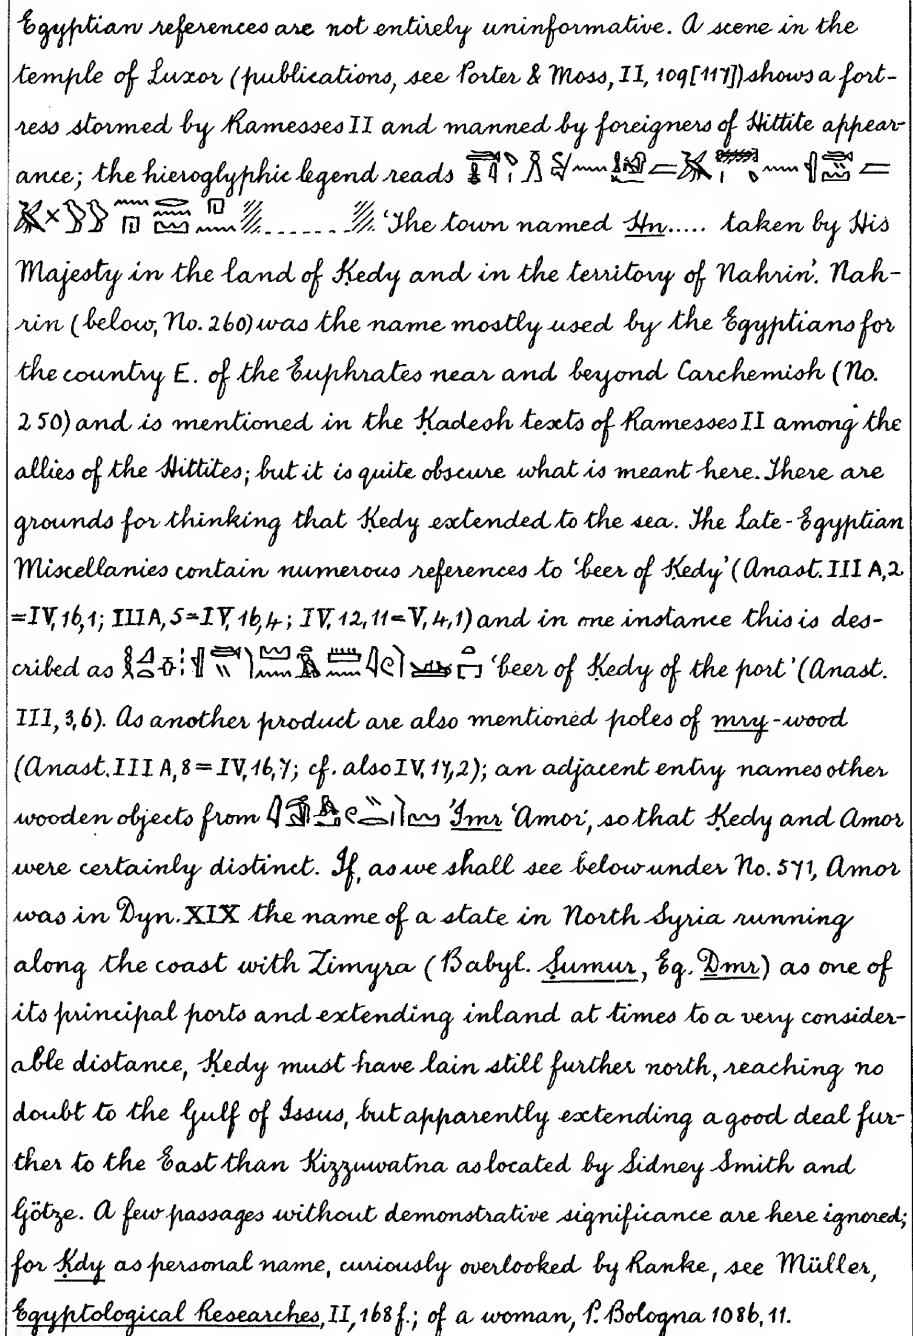 Egyptian references are not entirely uninformative. A scene in the
temple of Luxor (publications, see Porter & Moss, II, 109[117]) shows a fort-
ress stormed by Ramesses II and manned by foreigners of Hittite appear-
ance; the hieroglyphic legend reads
'The town named Ḥn..... taken by His
Majesty in the land of Ḳedy and in the territory of Nahrin'. Nah-
rin (below, No. 260) was the name mostly used by the Egyptians for
the country E. of the Euphrates near and beyond Carchemish (No.
250) and is mentioned in the Ḳadesh texts of Ramesses II among the
allies of the Hittites; but it is quite obscure what is meant here. There are
grounds for thinking that Ḳedy extended to the sea. The Late-Egyptian
Miscellanies contain numerous references to 'beer of Ḳedy' (Anast. III A, 2
=IV, 16, 1; III A, 5=IV, 16, 4; IV, 12, 11=V, 4, 1) and in one instance this is des-
cribed as 'beer of Ḳedy of the port' (Anast.
III, 3, 6). As another product are also mentioned poles of mry-wood
(Anast. III A, 8=IV, 16, 7; cf. also IV, 17, 2); an adjacent entry names other
wooden objects from 'Imr 'Amor', so that Ḳedy and Amor
were certainly distinct. If, as we shall see below under No. 571, Amor
was in Dyn. XIX the name of a state in North Syria running
along the coast with Zimyra (Babyl. Ṣumur, Eg. Ḏmr) as one of
its principal ports and extending inland at times to a very consider-
able distance, Ḳedy must have lain still further north, reaching no
doubt to the Gulf of Issus, but apparently extending a good deal fur-
ther to the East than Kizzuwatna as located by Sidney Smith and
Götze. A few passages without demonstrative significance are here ignored;
for Ḳdy as personal name, curiously overlooked by Ranke, see Müller,
Egyptological Researches, II, 168 f.; of a woman, P. Bologna 1086, 11.